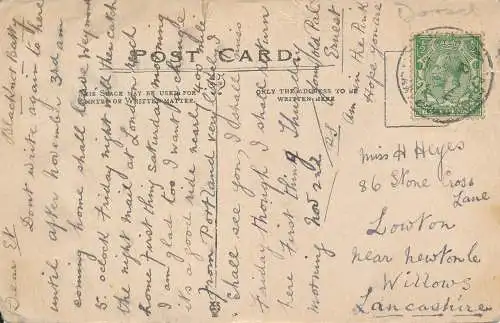 Dorset
POST CARD.
THIS SPACE MAY BE USED FOR
PRINTED OR WRITTEN MATTER.
ONLY THE ADDRESS TO BE
WRITTEN HERE.
Dear Et
Dont write again to the
Blacknet Batty
until after November 3rd am
coming home shall leave Weymouth
5. oclock Friday night shall then catch
the night mail at London reach
home first thing saturday morning
I am glad too I want a change
it's a good ride nearly 400 mile
from Portland very likely I
shall see you, I shall miss
Friday though I shall return
here first thing Thursday
morning Nov 22nd
Your Old Pal
Ernest
P.S
Am in the Pink
Hope you are
Miss H Heyes
86 Stone Cross
Lane
Lowton
near Newton le
Willows
Lancashire